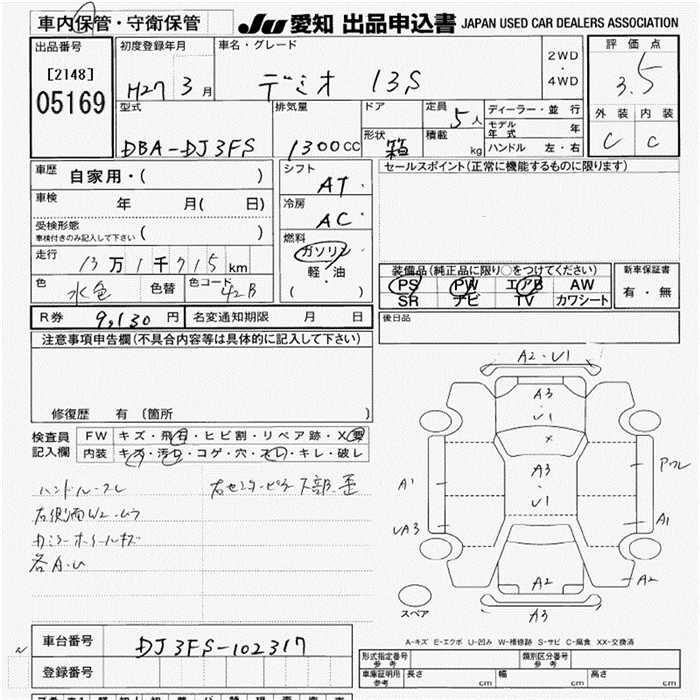 車内保管・守衛保管
JU 愛知 出品申込書 JAPAN USED CAR DEALERS ASSOCIATION
出品番号
[2148]
05169
初度登録年月
H27 3 月
車名・グレード
デミオ 13S
2WD
・
4WD
評価点
3.5
型式
DBA-DJ3FS
排気量
1300cc
ドア
形状
箱
定員
5人
積載
kg
ディーラー・並行
モデル年式 年
ハンドル 左・右
外装 内装
C C
車歴
自家用・( )
車検
年 月( 日)
受検形態
車検付きのみ記入して下さい ( )
走行
13万1千715km
色
水色
色替
色コード
42B
シフト
AT
冷房
AC
燃料
ガソリン
軽・油
( )
セールスポイント(正常に機能するものに限ります)
装備品(純正品に限り○をつけてください)
PS PW エアB AW
SR ナビ TV カワシート
新車保証書
有・無
R券 9,130 円
名変通知期限 月 日
後日品
注意事項申告欄(不具合内容等は具体的に記入して下さい)
修復歴 有 (箇所 )
検査員
記入欄
FW キズ・飛石・ヒビ割・リペア跡・X要
内装 キズ・汚レ・コゲ・穴・スレ・キレ・破レ
ハンドル・スレ
右センターピラー下部歪
右側面W2・ムラ
カラーホイールキズ
各A・U
A2・U1
A3
U1
X
A3
U1
A1
UA3
A1
A2
A2
A3
スペア
A-キズ E-エクボ U-凹み W-補修跡 S-サビ C-腐食 XX-交換済
車台番号 DJ3FS-102317
登録番号
形式指定番号
参考
類別区分番号
参考
車庫証明用
参考
長さ cm 幅 cm 高さ cm